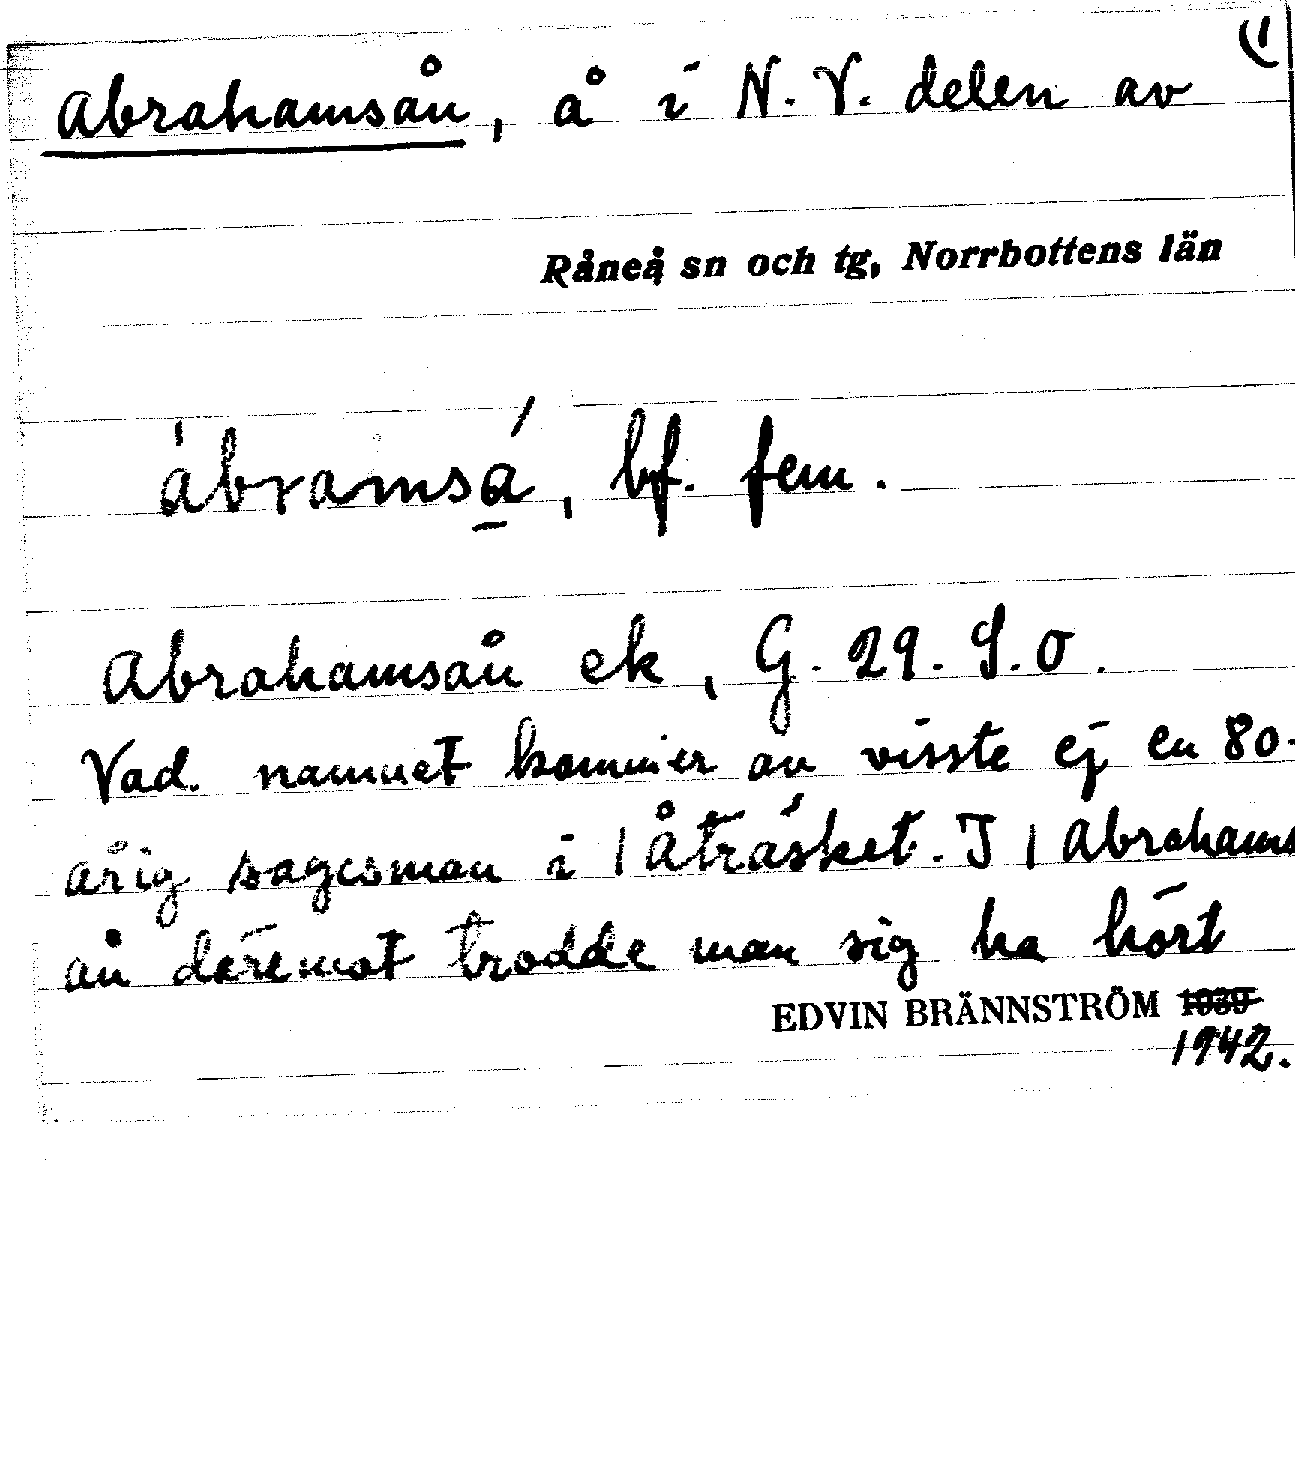 (1
Abrahamsån, å i N.V. delen av
Råneå sn och tg, Norrbottens län
ábramsá̱, bf. fem.
Abrahamsån ek, G. 29. S.O.
Vad. namnet kommer av visste ej en 80-
årig sagesman i | Åträsket. I | Abrahams
ån däremot trodde man sig ha hört
EDVIN BRÄNNSTRÖM 1939
1942.